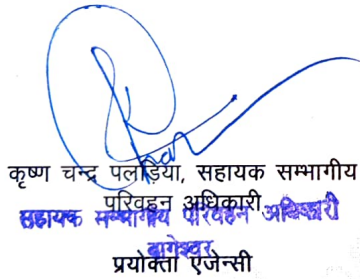 कृष्ण चन्द्र पलड़िया, सहायक सम्भागीय
परिवहन अधिकारी,
सहायक सम्भागीय परिवहन अधिकारी
बागेश्वर
प्रयोक्ता एजेन्सी